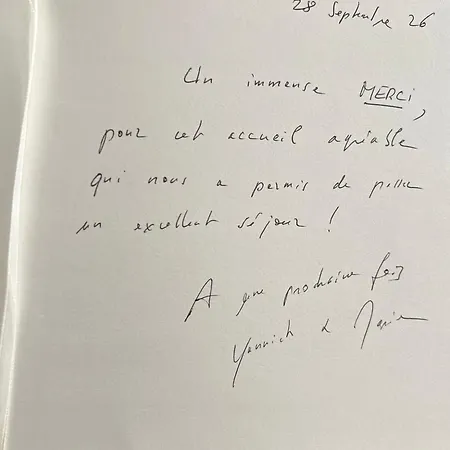 28 Septembre 26
Un immense MERCI,
pour cet accueil agréable
qui nous a permis de passer
un excellent séjour !
A une prochaine fois
Yannick & Marie